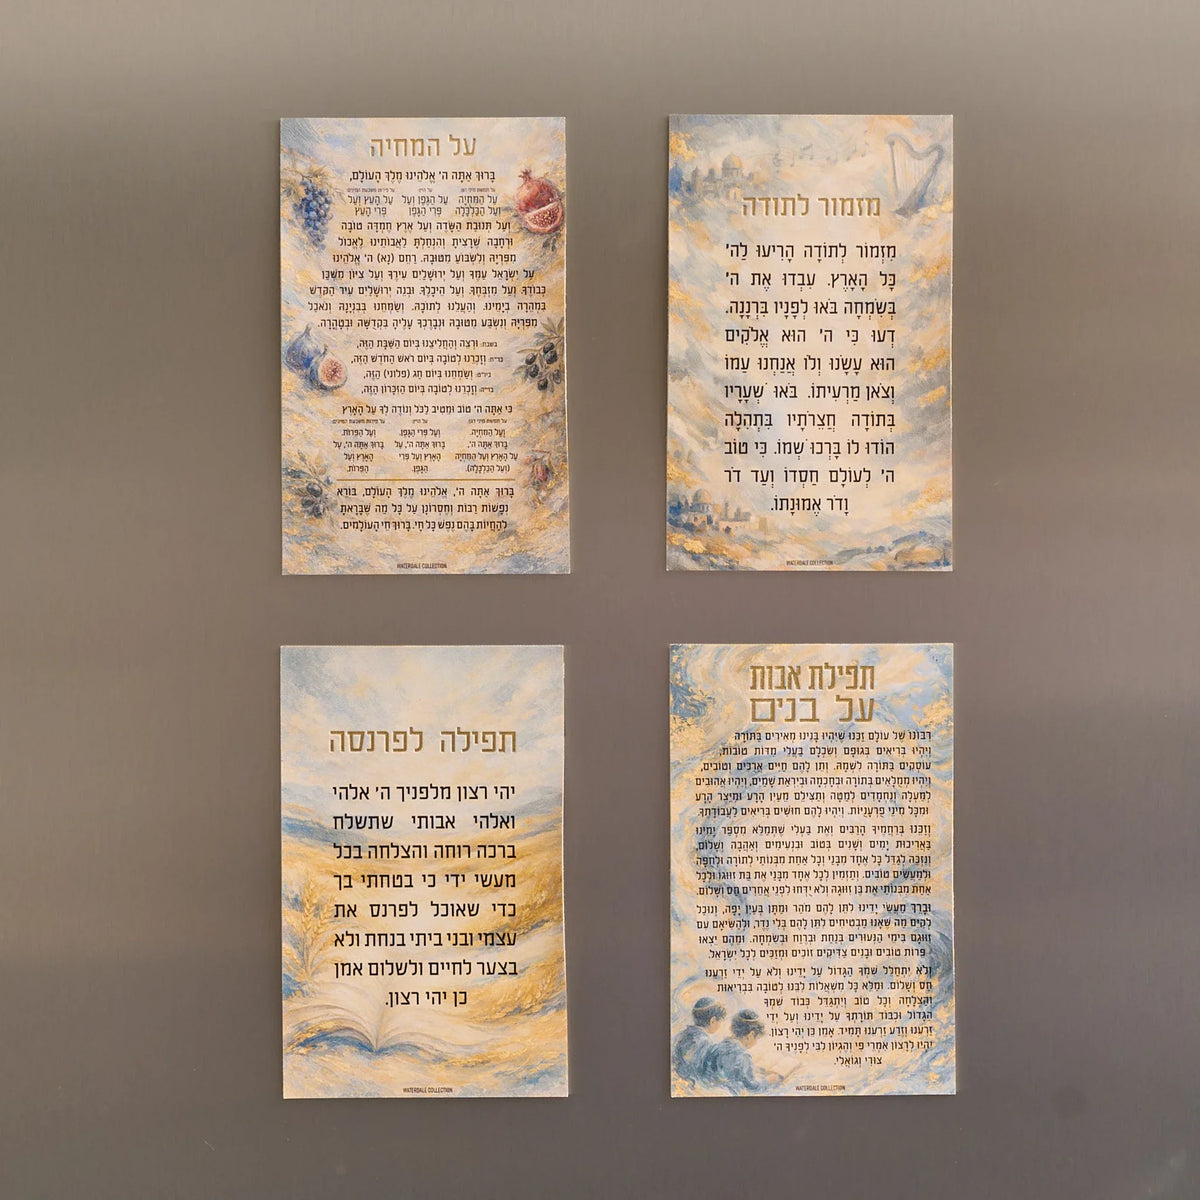 על המחיה
בָּרוּךְ אַתָּה ה' אֱלֹהֵינוּ מֶלֶךְ הָעוֹלָם,
על תמצאת מיני דגן: על היין: על פירות משבעת המינים:
עַל הַמִּחְיָה עַל הַגֶּפֶן וְעַל עַל הָעֵץ וְעַל
וְעַל הַכַּלְכָּלָה פְּרִי הַגֶּפֶן פְּרִי הָעֵץ
וְעַל תְּנוּבַת הַשָּׂדֶה וְעַל אֶרֶץ חֶמְדָּה טוֹבָה
וּרְחָבָה שֶׁרָצִיתָ וְהִנְחַלְתָּ לַאֲבוֹתֵינוּ לֶאֱכוֹל
מִפִּרְיָהּ וְלִשְׂבּוֹעַ מִטּוּבָהּ. רַחֵם (נָא) ה' אֱלֹהֵינוּ
עַל יִשְׂרָאֵל עַמֶּךָ וְעַל יְרוּשָׁלַיִם עִירֶךָ וְעַל צִיּוֹן מִשְׁכַּן
כְּבוֹדֶךָ וְעַל מִזְבְּחֶךָ וְעַל הֵיכָלֶךָ וּבְנֵה יְרוּשָׁלַיִם עִיר הַקֹּדֶשׁ
בִּמְהֵרָה בְיָמֵינוּ. וְהַעֲלֵנוּ לְתוֹכָהּ. וְשַׂמְּחֵנוּ בְּבִנְיָנָהּ וְנֹאכַל
מִפִּרְיָהּ וְנִשְׂבַּע מִטּוּבָהּ וּנְבָרֶכְךָ עָלֶיהָ בִּקְדֻשָּׁה וּבְטָהֳרָה.
בשבת: וּרְצֵה וְהַחֲלִיצֵנוּ בְּיוֹם הַשַּׁבָּת הַזֶּה,
בר"ח: וְזָכְרֵנוּ לְטוֹבָה בְּיוֹם רֹאשׁ הַחֹדֶשׁ הַזֶּה,
ביו"ט: וְשַׂמְּחֵנוּ בְּיוֹם חַג (פלוני) הַזֶּה,
בר"ה: וְזָכְרֵנוּ לְטוֹבָה בְּיוֹם הַזִּכָּרוֹן הַזֶּה,
כִּי אַתָּה ה' טוֹב וּמֵטִיב לַכֹּל וְנוֹדֶה לְךָ עַל הָאָרֶץ
על תמצאת מיני דגן: על היין: על פירות משבעת המינים:
וְעַל הַמִּחְיָה. וְעַל פְּרִי הַגֶּפֶן. וְעַל הַפֵּרוֹת.
בָּרוּךְ אַתָּה ה', בָּרוּךְ אַתָּה ה', עַל בָּרוּךְ אַתָּה ה', עַל
עַל הָאָרֶץ וְעַל הַמִּחְיָה הָאָרֶץ וְעַל פְּרִי הָאָרֶץ וְעַל
(וְעַל הַכַּלְכָּלָה). הַגֶּפֶן. הַפֵּרוֹת.
בָּרוּךְ אַתָּה ה', אֱלֹהֵינוּ מֶלֶךְ הָעוֹלָם, בּוֹרֵא
נְפָשׁוֹת רַבּוֹת וְחֶסְרוֹנָן עַל כָּל מַה שֶּׁבָּרָאתָ
לְהַחֲיוֹת בָּהֶם נֶפֶשׁ כָּל חָי. בָּרוּךְ חֵי הָעוֹלָמִים.
WATERDALE COLLECTION
מזמור לתודה
מִזְמוֹר לְתוֹדָה הָרִיעוּ לַה'
כָּל הָאָרֶץ. עִבְדוּ אֶת ה'
בְּשִׂמְחָה בֹּאוּ לְפָנָיו בִּרְנָנָה.
דְּעוּ כִּי ה' הוּא אֱלֹקִים
הוּא עָשָׂנוּ וְלוֹ אֲנַחְנוּ עַמּוֹ
וְצֹאן מַרְעִיתוֹ. בֹּאוּ שְׁעָרָיו
בְּתוֹדָה חֲצֵרֹתָיו בִּתְהִלָּה
הוֹדוּ לוֹ בָּרְכוּ שְׁמוֹ. כִּי טוֹב
ה' לְעוֹלָם חַסְדּוֹ וְעַד דֹּר
וָדֹר אֱמוּנָתוֹ.
WATERDALE COLLECTION
תפילה לפרנסה
יהי רצון מלפניך ה' אלהי
ואלהי אבותי שתשלח
ברכה רוחה והצלחה בכל
מעשי ידי כי בטחתי בך
כדי שאוכל לפרנס את
עצמי ובני ביתי בנחת ולא
בצער לחיים ולשלום אמן
כן יהי רצון.
WATERDALE COLLECTION
תפילת אבות
על בנים
רִבּוֹנוֹ שֶׁל עוֹלָם זַכֵּנוּ שֶׁיִּהְיוּ בָּנֵינוּ מְאִירִים בַּתּוֹרָה
וְיִהְיוּ בְּרִיאִים בְּגוּפָם וְשִׂכְלָם בַּעֲלֵי מִדּוֹת טוֹבוֹת,
עוֹסְקִים בַּתּוֹרָה לִשְׁמָהּ. וְתֵן לָהֶם חַיִּים אֲרֻכִּים וְטוֹבִים,
וְיִהְיוּ מְמֻלָּאִים בְּתוֹרָה וּבְחָכְמָה וּבְיִרְאַת שָׁמַיִם, וְיִהְיוּ אֲהוּבִים
לְמַעְלָה וְנֶחְמָדִים לְמַטָּה וְתַצִּילֵם מֵעַיִן הָרָע וּמִיֵּצֶר הָרָע
וּמִכָּל מִינֵי פֻּרְעָנֻיּוֹת. וְיִהְיוּ לָהֶם חוּשִׁים בְּרִיאִים לַעֲבוֹדָתֶךָ.
וְזַכֵּנוּ בְּרַחֲמֶיךָ הָרַבִּים וְאֶת בַּעֲלִי שֶׁתְּמַלֵּא מִסְפַּר יָמֵינוּ
בַּאֲרִיכוּת יָמִים וְשָׁנִים בְּטוֹב וּבִנְעִימִים וְאַהֲבָה וְשָׁלוֹם,
וְנִזְכֶּה לְגַדֵּל כָּל אֶחָד מִבָּנַי וְכָל אַחַת מִבְּנוֹתַי לְתוֹרָה וּלְחֻפָּה
וּלְמַעֲשִׂים טוֹבִים. וְתַזְמִין לְכָל אֶחָד מִבָּנַי אֶת בַּת זוּגוֹ וּלְכָל
אַחַת מִבְּנוֹתַי אֶת בֶּן זוּגָהּ וְלֹא יִדָּחוּ לִפְנֵי אֲחֵרִים חַס וְשָׁלוֹם.
וּבָרֵךְ מַעֲשֵׂי יָדֵינוּ לִתֵּן לָהֶם מֹהַר וּמַתָּן בְּעַיִן יָפָה, וְנוּכַל
לְקַיֵּם מַה שֶּׁאָנוּ מַבְטִיחִים לִתֵּן לָהֶם בְּלִי נֶדֶר, וּלְהַשִּׂיאָם עִם
זִוּוּגָם בִּימֵי הַנְּעוּרִים בְּנַחַת וּבְרֶוַח וּבְשִׂמְחָה. וּמֵהֶם יֵצְאוּ
פֵּרוֹת טוֹבִים וּבָנִים צַדִּיקִים זוֹכִים וּמְזַכִּים לְכָל יִשְׂרָאֵל.
וְלֹא יִתְחַלֵּל שִׁמְךָ הַגָּדוֹל עַל יָדֵינוּ וְלֹא עַל יְדֵי זַרְעֵנוּ
חַס וְשָׁלוֹם. וּמַלֵּא כָּל מִשְׁאֲלוֹת לִבֵּנוּ לְטוֹבָה בִּבְרִיאוּת
וְהַצְלָחָה וְכָל טוֹב וְיִתְגַּדֵּל כְּבוֹד שִׁמְךָ
הַגָּדוֹל וּכְבוֹד תּוֹרָתְךָ עַל יָדֵינוּ וְעַל יְדֵי
זַרְעֵנוּ וְזֶרַע זַרְעֵנוּ תָּמִיד. אָמֵן כֵּן יְהִי רָצוֹן.
יִהְיוּ לְרָצוֹן אִמְרֵי פִי וְהֶגְיוֹן לִבִּי לְפָנֶיךָ ה'
צוּרִי וְגוֹאֲלִי.
WATERDALE COLLECTION